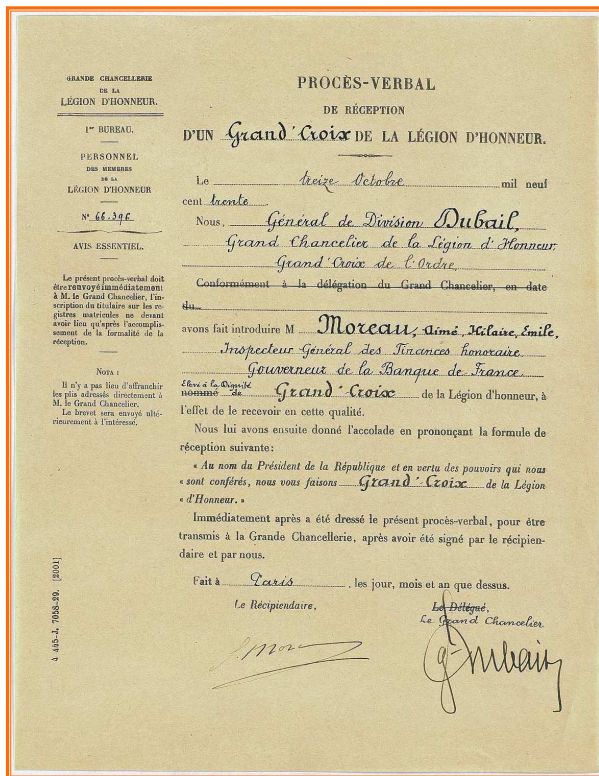 GRANDE CHANCELLERIE
DE LA
LÉGION D'HONNEUR.
1er BUREAU.
PERSONNEL
DES MEMBRES
DE LA
LÉGION D'HONNEUR
N° 66.396
AVIS ESSENTIEL.
Le présent procès-verbal doit
être renvoyé immédiatement
à M. le Grand Chancelier, l'ins-
cription du titulaire sur les re-
gistres matricules ne devant
avoir lieu qu'après l'accomplis-
sement de la formalité de la
réception.
NOTA :
Il n'y a pas lieu d'affranchir
les plis adressés directement à
M. le Grand Chancelier.
Le brevet sera envoyé ulté-
rieurement à l'intéressé.
4 445-J. 7058-29. [2001]
PROCÈS-VERBAL
DE RÉCEPTION
D'UN Grand'Croix DE LA LÉGION D'HONNEUR.
Le treize Octobre mil neuf
cent trente
Nous, Général de Division Dubail,
Grand Chancelier de la Légion d'Honneur,
Grand'Croix de l'Ordre,
Conformément à la délégation du Grand Chancelier, en date
du
avons fait introduire M Moreau, Aimé, Hilaire, Emile,
Inspecteur Général des Finances honoraire
Gouverneur de la Banque de France
Elevé à la Dignité
nommé de Grand'Croix de la Légion d'honneur, à
l'effet de le recevoir en cette qualité.
Nous lui avons ensuite donné l'accolade en prononçant la formule de
réception suivante :
« Au nom du Président de la République et en vertu des pouvoirs qui nous
« sont conférés, nous vous faisons Grand'Croix de la Légion
« d'Honneur. »
Immédiatement après a été dressé le présent procès-verbal, pour être
transmis à la Grande Chancellerie, après avoir été signé par le récipien-
daire et par nous.
Fait à Paris, les jour, mois et an que dessus.
Le Récipiendaire,
Le Délégué,
Le Grand Chancelier
Gal Dubail